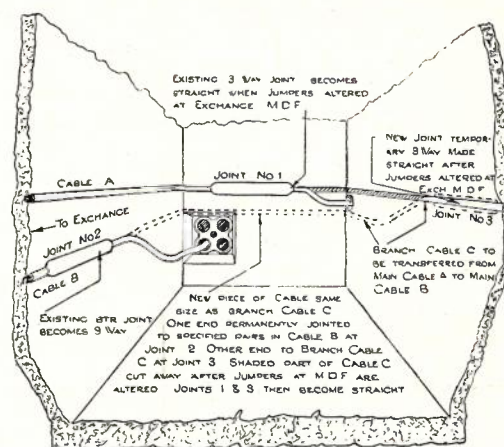 EXISTING 3 WAY JOINT BECOMES
STRAIGHT WHEN JUMPERS ALTERED
AT EXCHANGE MDF
NEW JOINT TEMPOR-
ARY 3 WAY MADE
STRAIGHT AFTER
JUMPERS ALTERED AT
EXCH MDF
CABLE A
JOINT NO1
JOINT NO3
TO EXCHANGE
JOINT NO2
CABLE B
BRANCH CABLE C TO
BE TRANSFERRED FROM
MAIN CABLE A TO MAIN
CABLE B
EXISTING STR JOINT
BECOMES 3 WAY
NEW PIECE OF CABLE SAME
SIZE AS BRANCH CABLE C
ONE END PERMANENTLY JOINTED
TO SPECIFIED PAIRS IN CABLE B AT
JOINT 2 OTHER END TO BRANCH CABLE
C AT JOINT 3 SHADED PART OF CABLE C
CUT AWAY AFTER JUMPERS AT MDF ARE
ALTERED JOINTS 1 & 3 THEN BECOME STRAIGHT